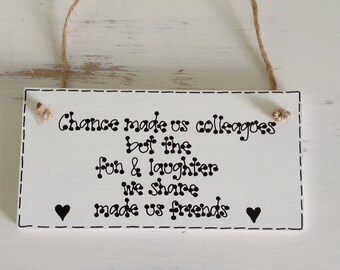 Chance made us colleagues
but the
fun & laughter
we share
made us friends